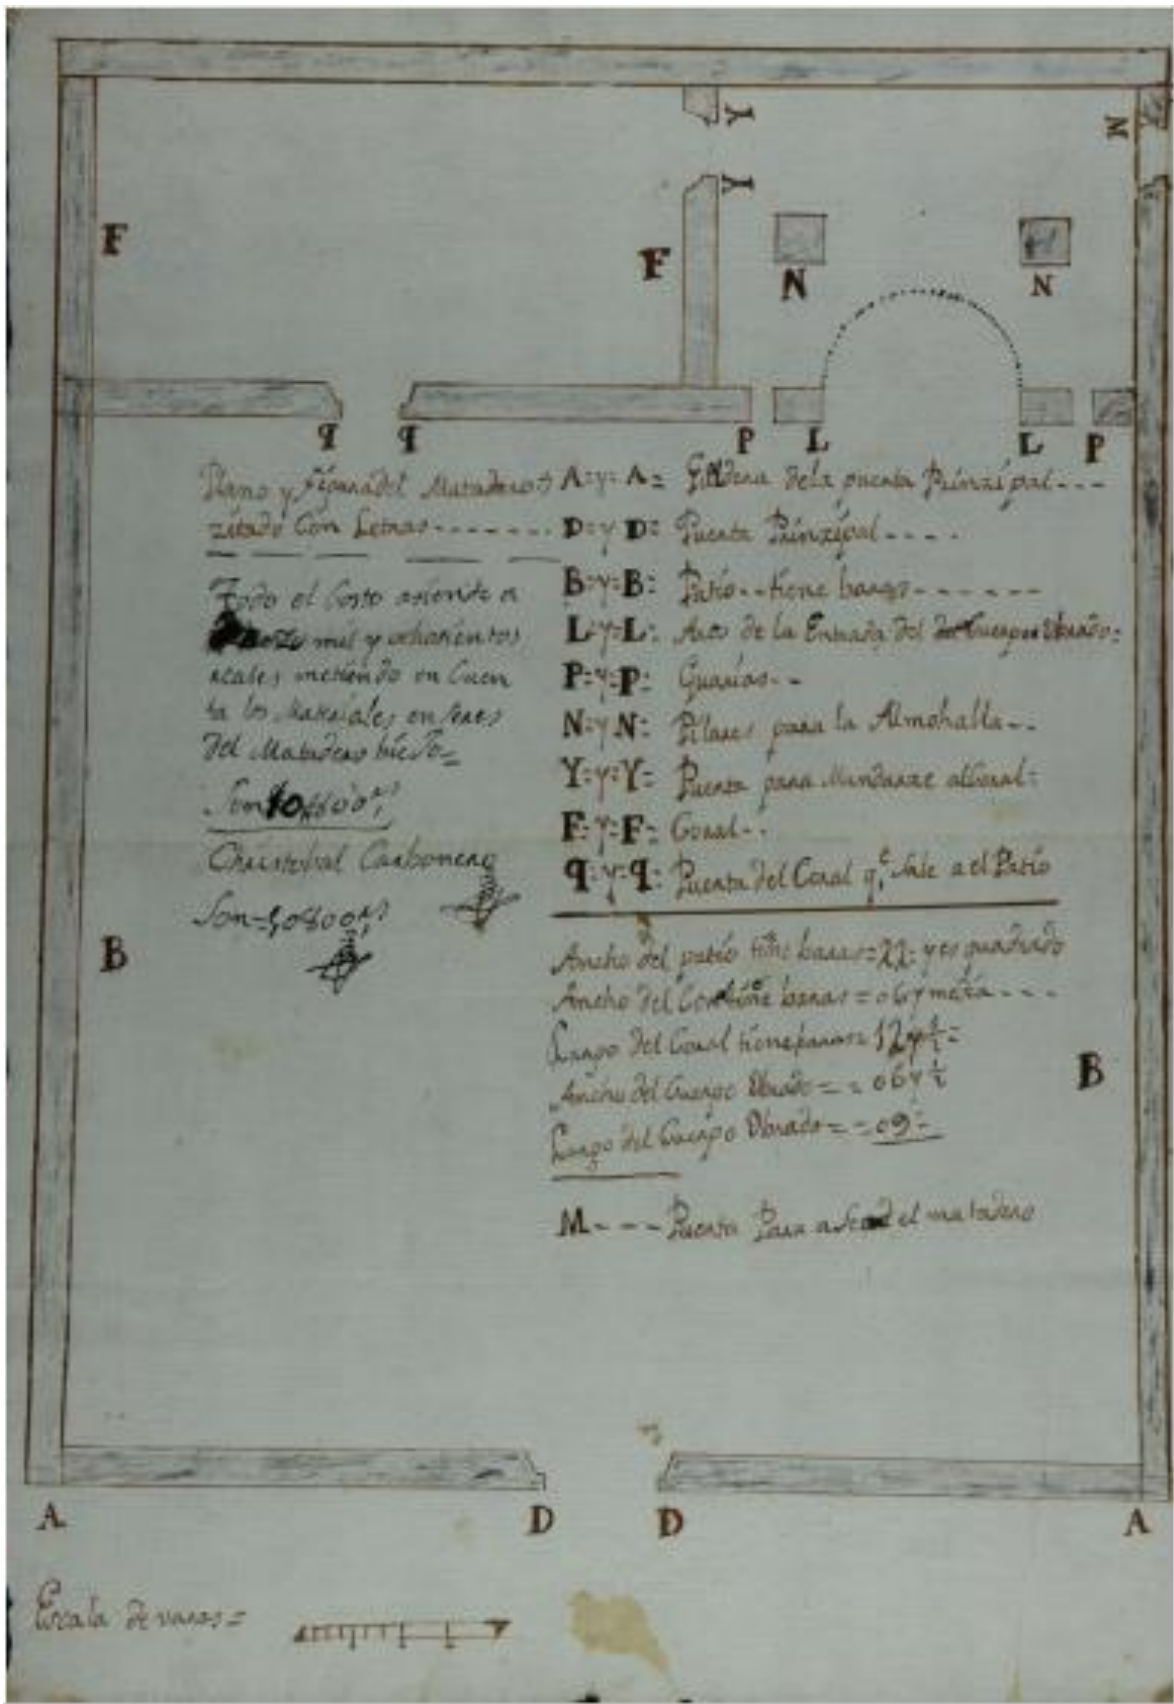 Y
M
Y
F
F
N
N
q q P L L P
Plano y figura del Matadero
zitado Con Letras
Todo el Costo asiende a
mil y ochosientos
reales metiendo en Cuen
ta los Materiales enseres
del Matadero biejo=
Son 10,800 rs
Christobal Carbonero
Son=10800 rs
A=y=A= de la puerta Prinzipal---
D=y D= Puerta Prinzipal----
B=y=B= Patio--tiene baras-------
L=y=L= Arco de la Entrada del Cuerpo Obrado=
P=y=P= Guarias--
N=y N= Pilares para la Almohalla--
Y=y=Y= Puerta para Mandarze al Coral=
F=y=F= Coral--
q=y=q= Puerta del Coral q.e Sale a el Patio
Ancho del patio tiene baras=22= y es quadrado
Ancho del Cor tiene baras=06 y media----
Largo del Coral tiene baras=12 y ½=
Ancho del Cuerpo Obrado==06 y ½
Largo del Cuerpo Obrado==09=
M---Puerta Para el matadero
B
B
A D D A
Escala de varas=